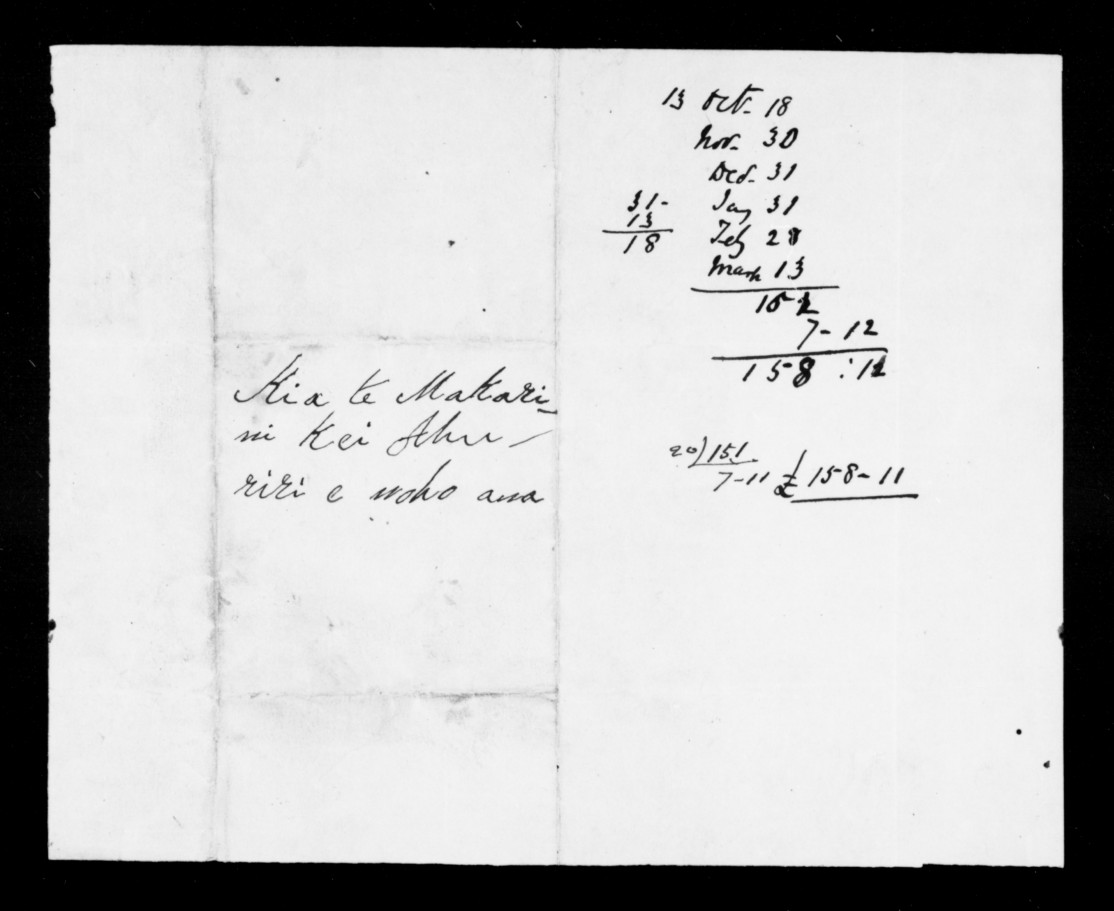 Kia te Makari-
ni Kei Ahu-
riri e noho ana
13 Oct. 18
Nov. 30
Dec. 31
31- Jay 31
13
18 Feby 28
March 13
152
7-12
158 : 12
20)151
7-11 £158-11